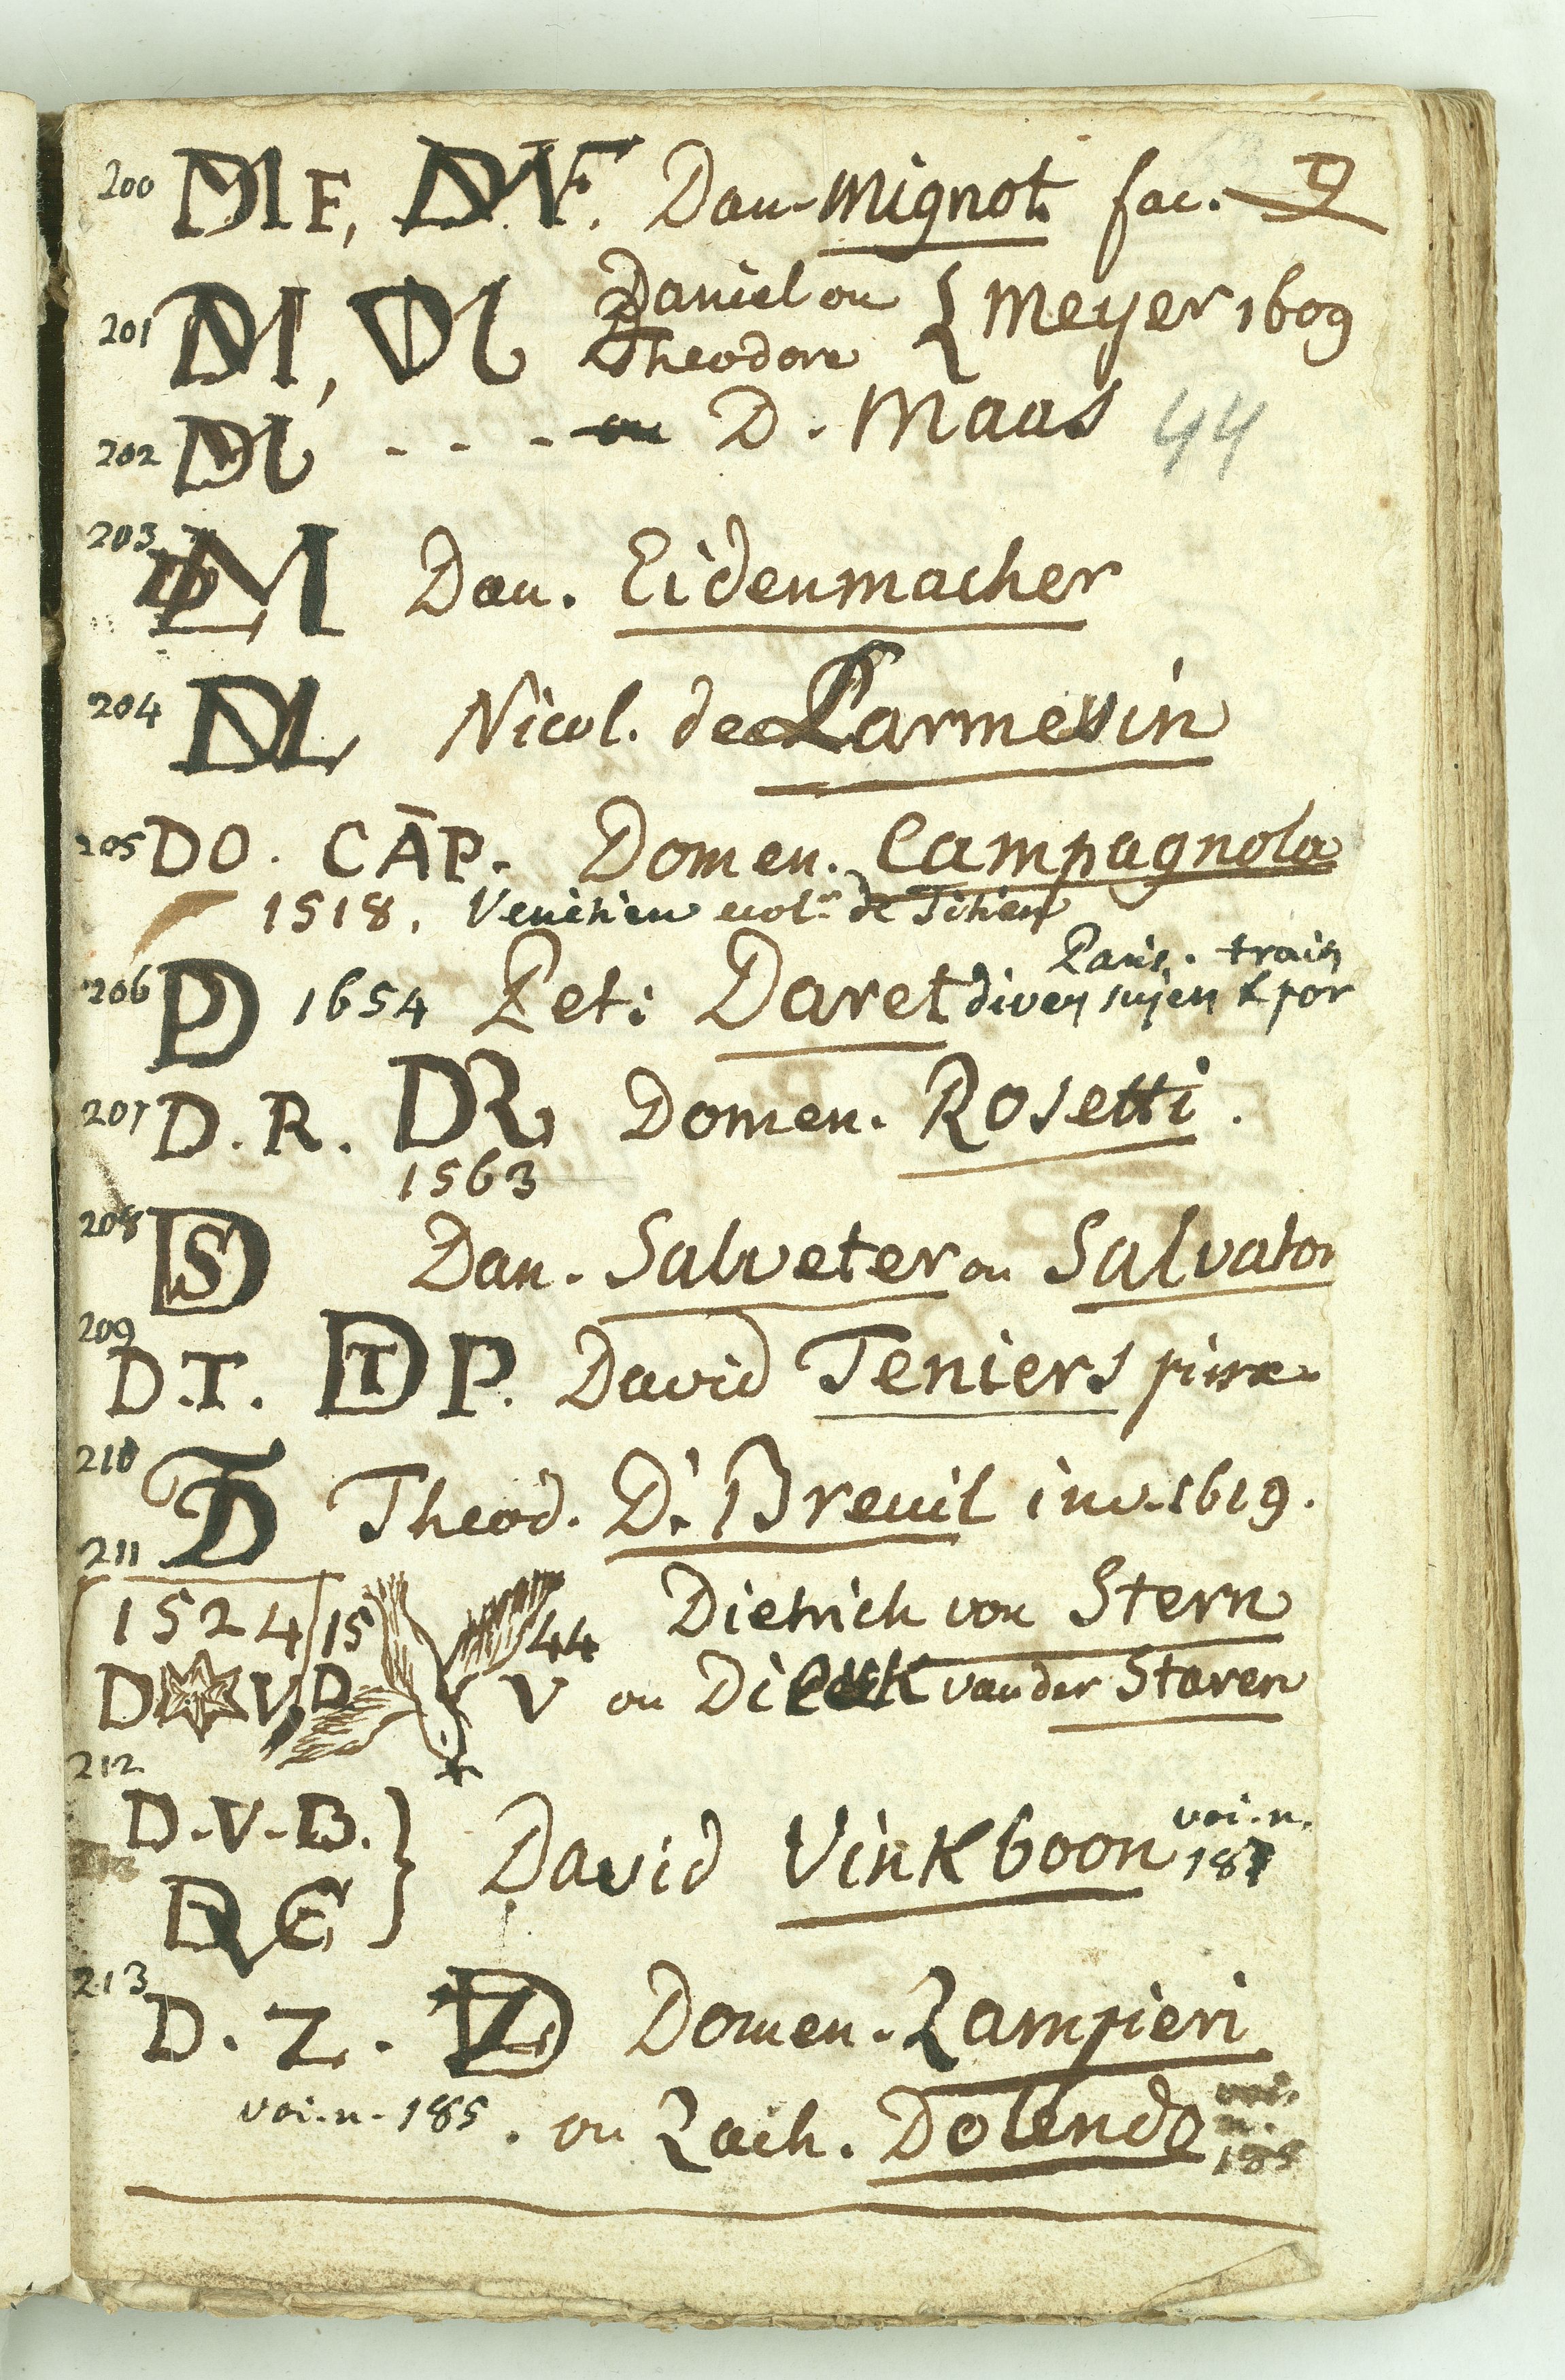 200 DM F, DMF. Dan. Mignot fac.
201 DM, DM Daniel ou Theodore { Meyer 1609
202 DM - - - ou D. Maas 44
203 DM Dan. Eidenmacher
204 DNL Nicol. de Larmessin
205 DO. CĀP. Domen. Campagnola
1518. Venetien ecolr de Titien
206 PD 1654 Pet: Daret Paris. trais
divers sujets & por
207 D. R. DR Domen. Rosetti.
1563
208 DS Dan. Salveter ou Salvator
209
D.T. DT P. David Teniers pinx.
210 TD Theod. D. Breuil inv. 1619.
211
1524 15 44 Dietrich von Stern
D V D V ou Dirck van der Staren
212
D.V.B. } David Vinkboon voi. n.
187
213
D. Z. DZ Domen. Zampieri
voi. n. 185. ou Zach. Dolendo voi. n. 185